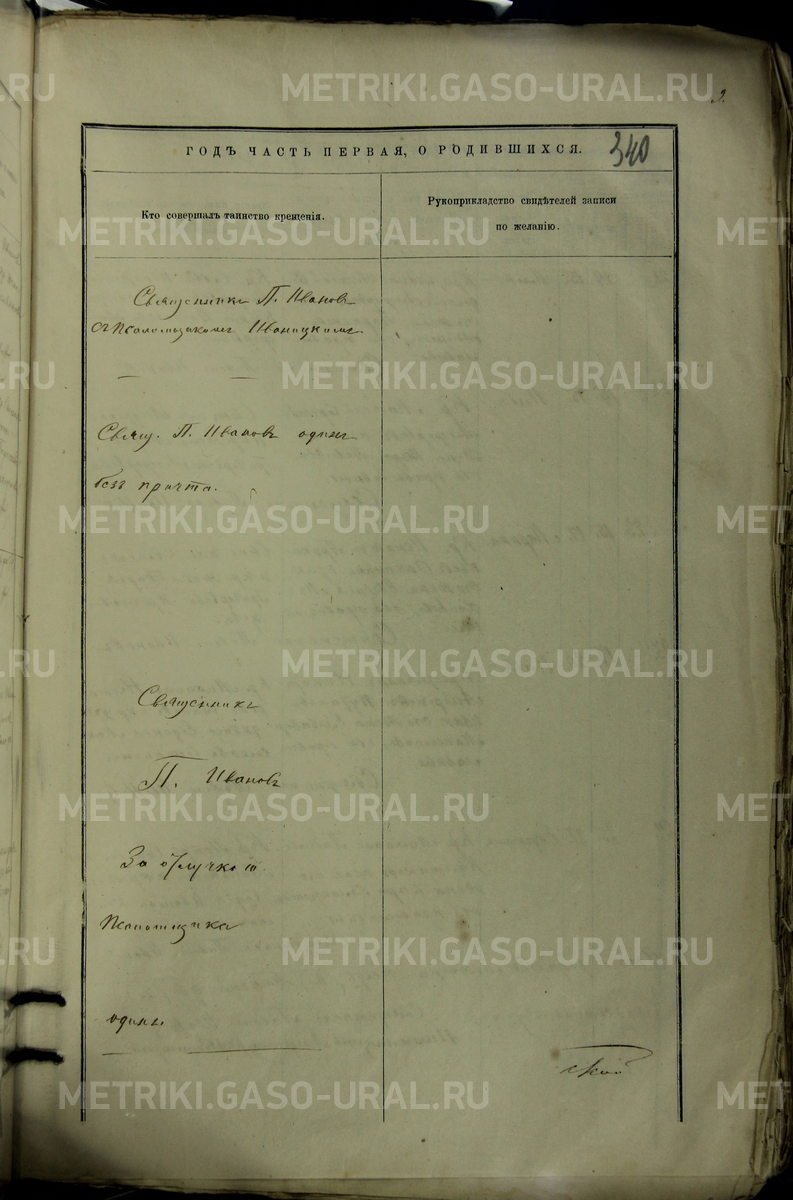 9.
340
ГОДЪ ЧАСТЬ ПЕРВАЯ, О РОДИВШИХСЯ.
Кто совершалъ таинство крещенія.
Рукоприкладство свидѣтелей записи
по желанію.
Священникъ П. Ивановъ
съ Псаломщикомъ
Свящ. П. Ивановъ одинъ
безъ причта.
Священникъ
П. Ивановъ
За отлучкою
Псаломщика
одинъ.
METRIKI.GASO-URAL.RU